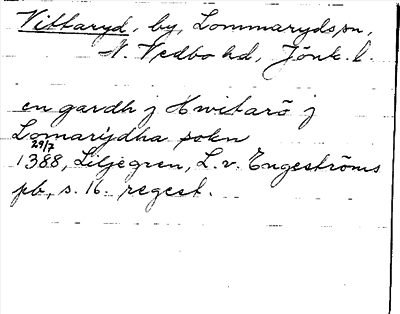 Vittaryd, by, Lommaryds sn,
N. Vedbo hd, Jönk. l.
en gardh j Hwitarö j
Lomarydha sokn
29/7
1388, Liljegren, L. v. Engeströms
pb, s. 16. regest.